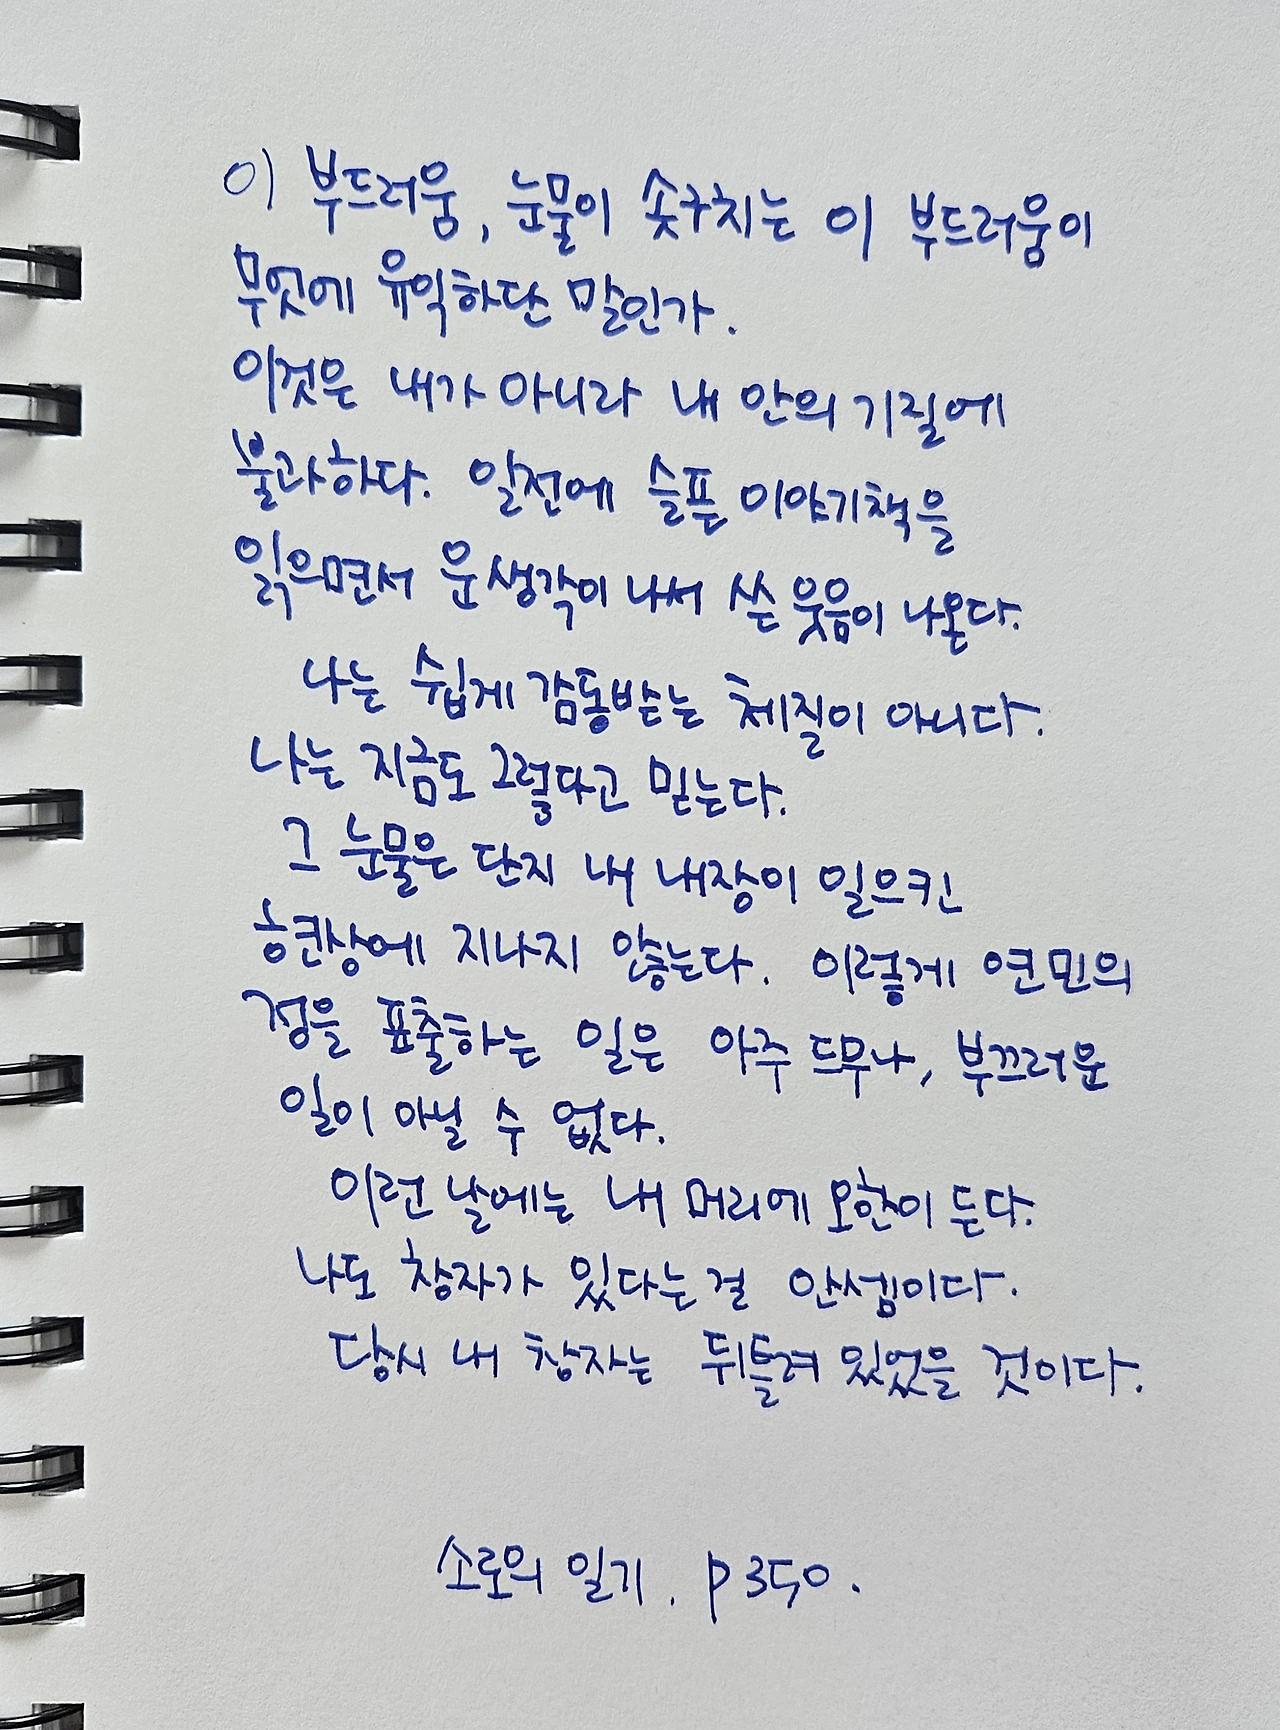 이 부드러움, 눈물이 솟구치는 이 부드러움이
무엇에 유익하단 말인가.
이것은 내가 아니라 내 안의 기질에
불과하다. 일전에 슬픈 이야기책을
읽으면서 운 생각이 나서 쓴 웃음이 나온다.
나는 쉽게 감동받는 체질이 아니다.
나는 지금도 그렇다고 믿는다.
그 눈물은 단지 내 내장이 일으킨
현상에 지나지 않는다. 이렇게 연민의
정을 표출하는 일은 아주 드무나, 부끄러운
일이 아닐 수 없다.
이런 날에는 내 머리에 오한이 든다.
나도 창자가 있다는 걸 안 셈이다.
당시 내 창자는 뒤틀려 있었을 것이다.
소로의 일기. p 350.